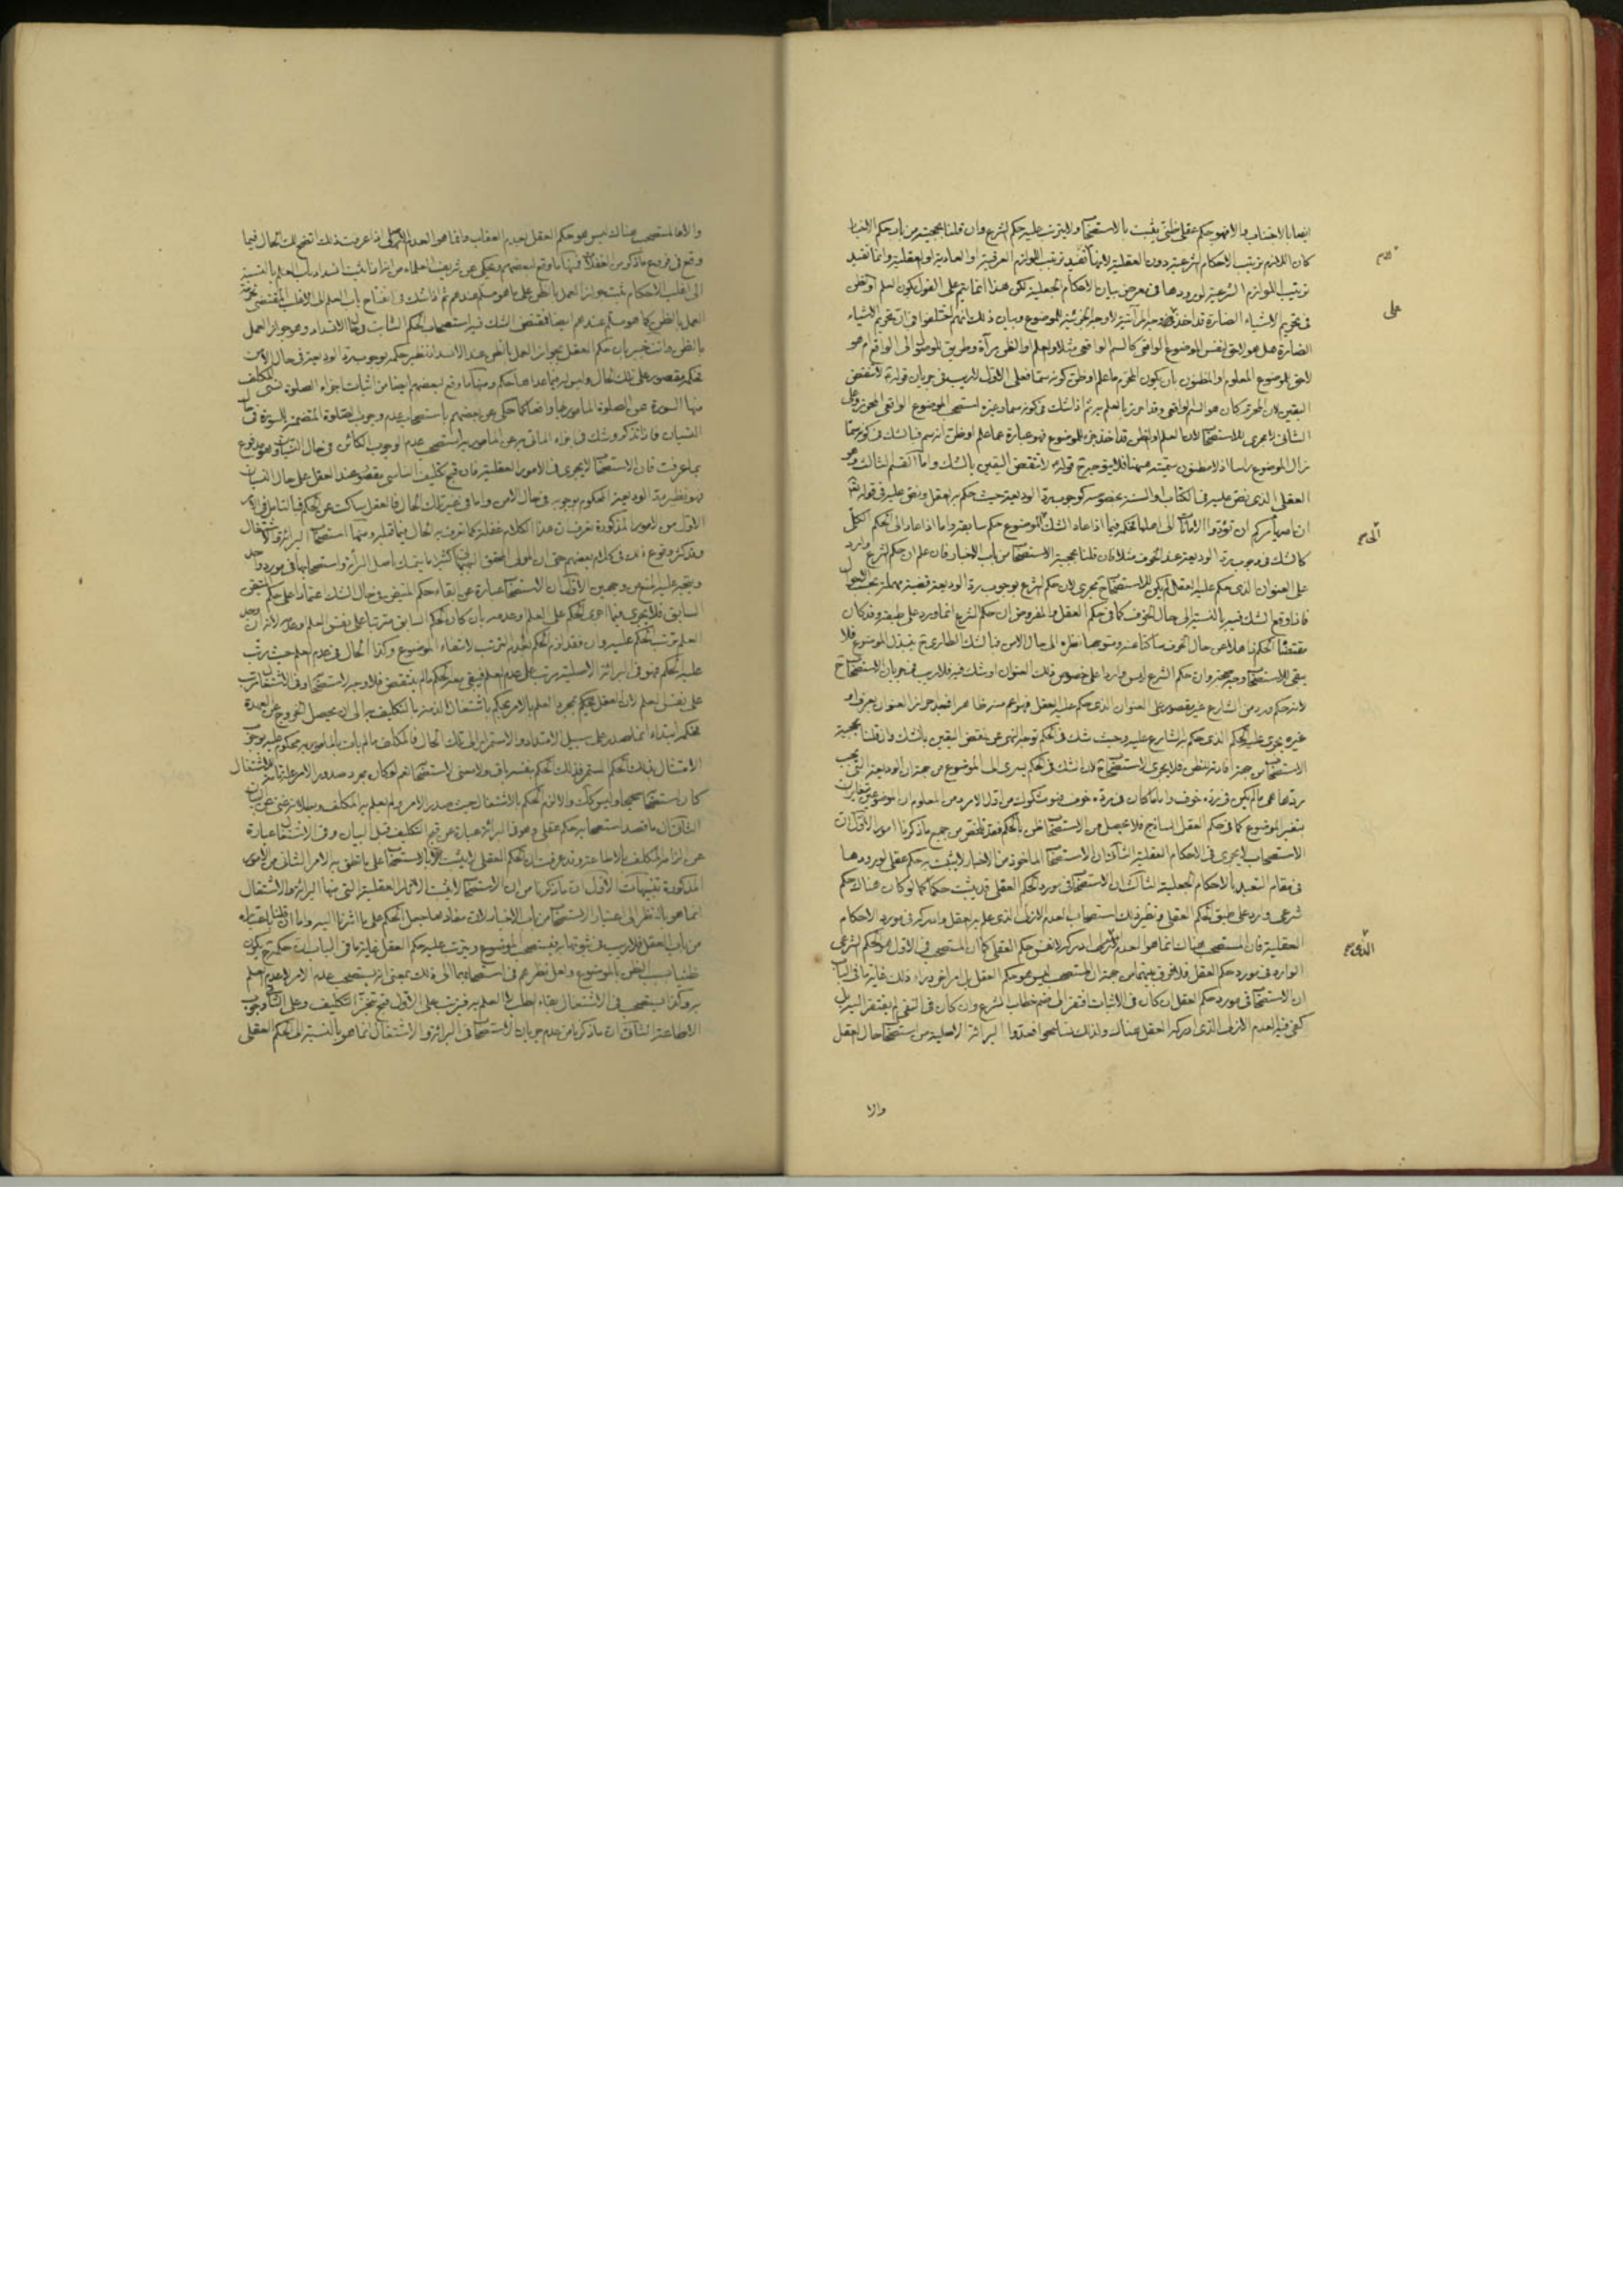 ايضا بالاجتناب والا فهو حكم عقلى ظنى يثبت بالاستصحاب ولا يترتب عليه حكم الشرع وان قلنا بحجيته من باب حكم الاخبار
كان اللازم ترتيب الاحكام الشرعية دون العقلية لانها لا تفيد ترتيب اللوازم العرفية او العادية او العقلية وانما تفيد
ترتيب اللوازم الشرعية لورودها فى معرض بيان الاحكام الجعلية لكن هذا انما يتم على القول بكون العلم او الظن
فى تحريم الاشياء الضارة قد اخذ على وجه المرآتية لا وجه الجزئية للموضوع وبيان ذلك انهم اختلفوا فى ان تحريم الاشياء
الضارة هل هو لاحق لنفس الموضوع الواقعى كالسم الواقعى مثلا والعلم او الظن مرآة وطريق للوصول الى الواقع ام هو
لاحق للموضوع المعلوم او المظنون بان يكون المحرم ما علم او ظن كونه سما فعلى الاول لا ريب فى جريان قوله لا تنقض
اليقين لان المحرم كان هو السم الواقعى وقد احرز بالعلم به ثم اذا شك فى كونه سما وعدمه استصحب الموضوع الواقعى المحرز وعلى
الثانى لا مجرى للاستصحاب لان العلم او الظن قد اخذ جزء للموضوع فهو عبارة عما علم او ظن انه سم فبالشك فى كونه سما
زال الموضوع راسا اذ لا مظنون سميته هيهنا فلا يتوجه ح قوله لا تنقض اليقين بالشك واما القسم الثالث وهو
العقلى الذى نص عليه فى الكتاب او السنة بخصوصه كوجوب رد الوديعة حيث حكم به العقل ونص عليه فى قوله تعالى
ان الله يأمركم ان تؤدوا الامانات الى اهلها فحكمه فيما اذا عاد الشك الى الموضوع حكم سابقه واما اذا عاد الى الحكم الكلى
كالشك فى وجوب رد الوديعة عند الخوف مثلا فان قلنا بحجية الاستصحاب من باب الاخبار فان علم ان حكم الشرع وارد
على العنوان الذى حكم عليه العقل لم يكن للاستصحاب ح مجرى لان حكم الشرع بوجوب رد الوديعة قضية مهملة بحسب الاحوال
فاذا وقع الشك فيه بالنسبة الى حال الخوف كما فى حكم العقل والمفروض ان حكم الشرع انما ورد على طبقه وقد كان
مقتضيا لحكمها هلا عن حال الخوف ساكتا عنه ومتوجها نظره الى حال الامن فبالشك الطارى ح يتبدل الموضوع فلا
يبقى للاستصحاب وجه صحة وان حكم الشرع ليس واردا على خصوص ذلك العنوان او شك فيه فلا ريب فى جريان الاستصحاب ح
لانه حكم ورد من الشارع غير مقصور على العنوان الذى حكم عليه العقل
غيره يجرى عليه الحكم الذى حكم به الشارع عليه وحيث شك فى الحكم توجه النهى عن نقض اليقين بالشك وان قلنا بحجية
الاستصحاب من جهة افادته للظن فلا يجرى الاستصحاب ح لان الشك فى الحكم يسرى الى الموضوع من جهة ان الوديعة التى يجب
ردها هى ما لم يكن فى رده خوف واما ما كان فى رده خوف فهو مشكوك من اول الامر ومن المعلوم ان الموضوعين متغايران
بتغير الموضوع كما فى حكم العقل الساذج فلا يحصل من الاستصحاب ظن بالحكم فقد تلخص من جميع ما ذكرنا امور الاول ان
الاستصحاب لا يجرى فى الاحكام العقلية الثانى ان الاستصحاب الماخوذ من الاخبار لا يثبت به حكم عقلى لورودها
فى مقام التعبد بالاحكام الجعلية الثالث ان الاستصحاب فى مورد الحكم العقلى قد يثبت حكما كما لو كان هناك حكم
شرعى وارد على طبق الحكم العقلى ونظير ذلك استصحاب العدم الازلى الذى علم به العقل وادركه فى مورد الاحكام
العقلية فان المستصحب هناك انما هو العدم الازلى المدرك لا نفس حكم العقل كما ان المستصحب فى الاول هو الحكم الشرعى
الوارد فى مورد حكم العقل فلا فرق بينهما من جهة ان المستصحب ليس هو حكم العقل بل امر اخر وراء ذلك غاية ما فى الباب
ان الاستصحاب فى مورد حكم العقل ان كان فى الاثبات افتقر الى ضم خطاب الشرع وان كان فى النفى لم يفتقر اليه بل
كفى فيه العدم الازلى الذى ادركه العقل هناك ولذلك تسامحوا فعدوا البرائة الاصلية من استصحاب حال العقل
والا
على
الى صح
الذى صح
والا فالمستصحب هناك ليس هو حكم العقل بعدم العقاب وانما هو العدم الازلى اذا عرفت ذلك اتضح لك الحال فيما
وقع فى فروع ما ذكر من الغفلات فمنها ما وقع لبعضهم وحكى عن شريف العلماء من انه اذا ثبت انسداد باب العلم بالنسبة
الى اغلب الاحكام ثبت جواز العمل بالظن على ما هو مسلم عندهم ثم اذا شك فى انفتاح باب العلم الى الاغلب المقتضى لحرمة
العمل بالظن كما هو مسلم عندهم ايضا فمقتضى الشك فيه استصحاب الحكم الثابت حال الانسداد وهو جواز العمل
بالظن وانت خبير بان حكم العقل بجواز العمل بالظن عند الانسداد نظير حكمه بوجوب رد الوديعة فى حال الامن
فحكمه مقصور على ذلك الحال وليس له فيما عداها حكم ومنها ما وقع لبعضهم ايضا من اثبات اجزاء الصلوة نسى المكلف
منها السورة عن الصلوة المامور بها واقعا كما حكى عن بعضهم باستصحاب عدم وجوب الصلوة المتضمنة للسورة فى حال
النسيان فاذا تذكر وشك فى اجزاء الماتى به عن المامور به استصحب عدم الوجوب الكائن فى حال النسيان وهو مدفوع
بما عرفت فان الاستصحاب لا يجرى فى الامور العقلية فان قبح تكليف الناسى مقصور عند العقل على حال النسيان
فهو نظير رد الوديعة المحكوم بوجوبه فى حال الامن واما فى غير تلك الحال فالعقل ساكت عن الحكم فبالتامل فى الامر
الاول من الامور المذكورة تعرف ان هذا الكلام غفلة كما تعرف به الحال فيما قبله ومنها استصحاب البرائة والاشتغال
وقد كثر وقوع ذلك فى كلام بعضهم حتى ان المولى المحقق البهبهانى كثيرا ما يتمسك باصل البرائة واستصحابها فى مورد واحد
ويتجه عليه المنع من وجهين الاول ان الاستصحاب عبارة عن ابقاء حكم المتيقن فى حال الشك اعتمادا على حكم المتيقن
السابق فلا يجرى فيما اجرى الحكم على العلم او عدمه بان كان الحكم السابق مترتبا على نفس العلم او عدمه لانه ان وجد
العلم ترتب الحكم عليه وان فقد لزم الحكم بعدم الترتب لانتفاء الموضوع وكذا الحال فى عدم العلم حيث رتب
عليه الحكم فهو فى البرائة الاصلية مرتب على عدم العلم فيبقى معه الحكم ما لم ينتقض فلا وجه للاستصحاب وفى الاشتغال مترتب
على نفس العلم لان العقل يحكم بمجرد العلم بالامر يحكم باشتغال الذمة بالتكليف به الى ان يحصل الخروج عن العهدة
فحكمه ابتداء انما صدر على سبيل الامتداد والاستمرار الى تلك الحال فالمكلف ما لم يات بالمامور به محكوم عليه بوجوب
الامتثال بذلك الحكم المستمر فذلك الحكم بنفسه باق ولا معنى لاستصحابه نعم لو كان مجرد صدور الامر علة تامة للاشتغال
كان استصحابه صحيحا وليس كذلك والا لزم الحكم بالاشتغال حيث صدر الامر ولم يعلم به المكلف وبطلانه غنى عن البيان
الثانى ان ما قصد استصحابه حكم عقلى وهو فى البرائة عبارة عن قبح التكليف قبل البيان وفى الاشتغال عبارة
عن الزام المكلف بالاطاعة وقد عرفت ان الحكم العقلى لا يثبت بالاستصحاب على ما نطق به الامر الثانى من الامور
المذكورة تنبيهات الاول ان ما ذكرنا من ان الاستصحاب لا يثبت الاثار العقلية التى منها البرائة والاشتغال
انما هو بالنظر الى اعتبار الاستصحاب من باب الاخبار لان مفادها جعل الحكم على ما اشرنا اليه واما ان قلنا باعتباره
من باب العقل فلا ريب فى ثبوتها به فيستصحب الموضوع ويترتب عليه حكم العقل غاية ما فى الباب ان حكمه ح يكون
ظنيا بسبب الظن بالموضوع ولعل نظرهم فى استصحابهما الى ذلك بمعنى انه يستصحب عدم الامر او عدم العلم
به وكذا يستصحب فى الاشتغال بقاء الطلب او العلم به فيترتب على الاول قبح تنجز التكليف وعلى الثانى وجوب
الاطاعة الثانى ان ما ذكرنا من عدم جريان الاستصحاب فى البرائة والاشتغال انما هو بالنسبة الى الحكم العقلى